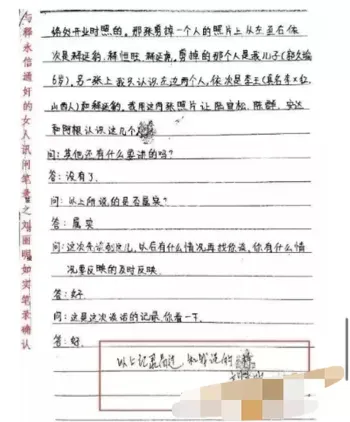 与释永信通奸的女人讯问笔录之刘丽明如实笔录确认
开业时照的。那张剪掉一个人的照片上从左至右依
次是释延豹、释恒旺、释延，剪掉的那个人是我儿子(
6岁)。另一张上我只认识左边两个人，依次是李玉(真名李×红,
山西人)和释延豹，我用这两张照片让陈、陈、
和阿根认识这几个
问：其他还有什么要讲的吗?
答：没有了。
问：以上所说的是否属实?
答：属实
问：这次先谈到这儿，以后有什么情况再找你谈，你有什么情
况要反映的及时反映。
答：好
问：这是这次谈话的记录，你看一下。
答：好。
以上记录看过，和我说的